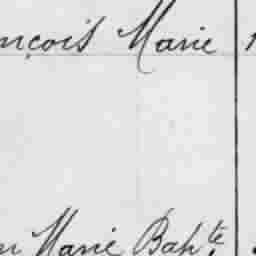 nçois Marie
n Marie Bapte